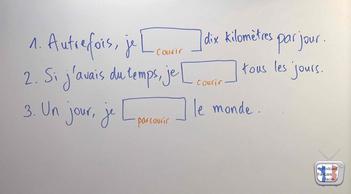 1. Autrefois, je [courir] dix kilomètres par jour.
2. Si j'avais du temps, je [courir] tous les jours.
3. Un jour, je [parcourir] le monde.